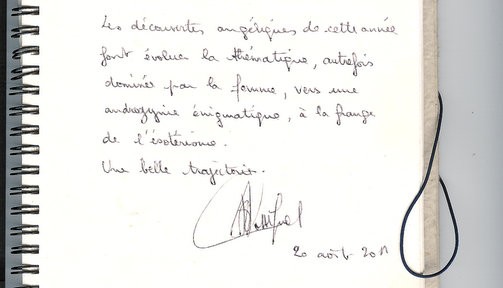 Les découvertes angéliques de cette année
font évoluer la thématique, autrefois
dominée par la femme, vers une
androgynie énigmatique, à la frange
de l'ésotérisme.
Une belle trajectoire.
20 août 2011